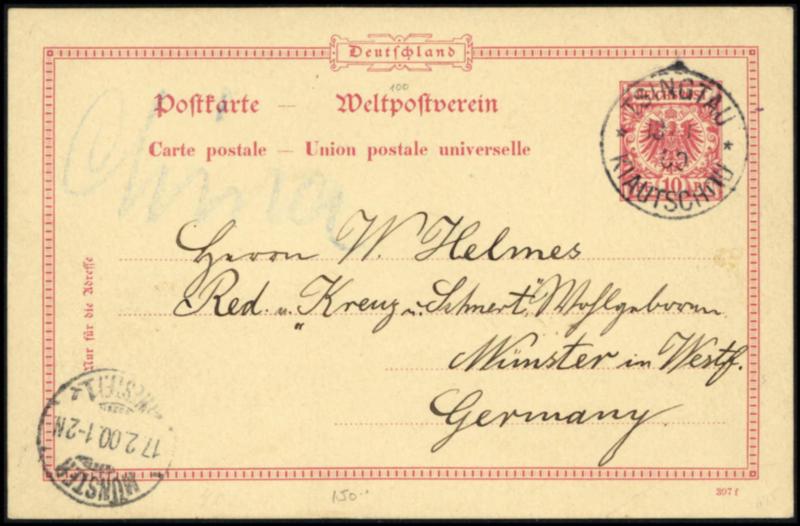 Deutschland
100
Postkarte — Weltpostverein
Carte postale — Union postale universelle
China
TSINGTAU
* *
00
KIAUTSCHOU
10
Herrn W. Helmes
Red. v. "Kreuz u. Schwert", Wohlgeboren
Münster in Westf.
Germany
Nur für die Adresse
MÜNSTER
17.2.00.1-2N.
(WESTF.)1
150
397 f